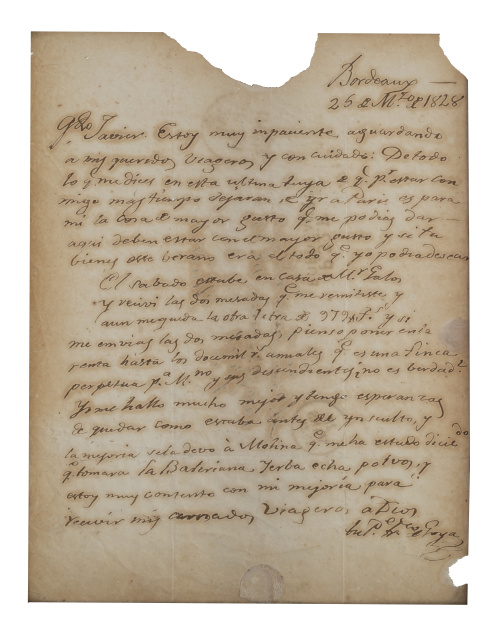 Bordeaux —
26 de Mzo de 1828
qdo Javier. Estoy muy inpaciente aguardando
a mis queridos Viageros y con cuidado: De todo
lo q. me dices en esta ultima tuya de q.e p.r estar con
migo mas tiempo dejaran de yr a Paris es para
mi la cosa de mayor gusto q.e me podias dar —
aqui deben estar con el mayor gusto y si tu
bienes este berano era el todo q.e yo podia desear
El sabado estube en casa de M.r Galos
y recivi las dos mesadas q.e me remitiste y
aun me queda la otra letra de 979 y si
me envias las dos mesadas, pienso poner en la
renta hasta los docemil r.s anuales q.e es una finca
perpetua p.a M.no y sus descendientes no es berdad?
Yo me hallo mucho mejor y tengo esperanzas
de quedar como estaba antes del ynsulto, y
la mejoria se la devo à Molina q.e me ha estado diciendo
q.e tomara la Baleriana Yerba echa polvos, y
estoy muy contento con mi mejoria para
recivir mis amados Viageros a Dios
tu P.e Fr.co de Goya